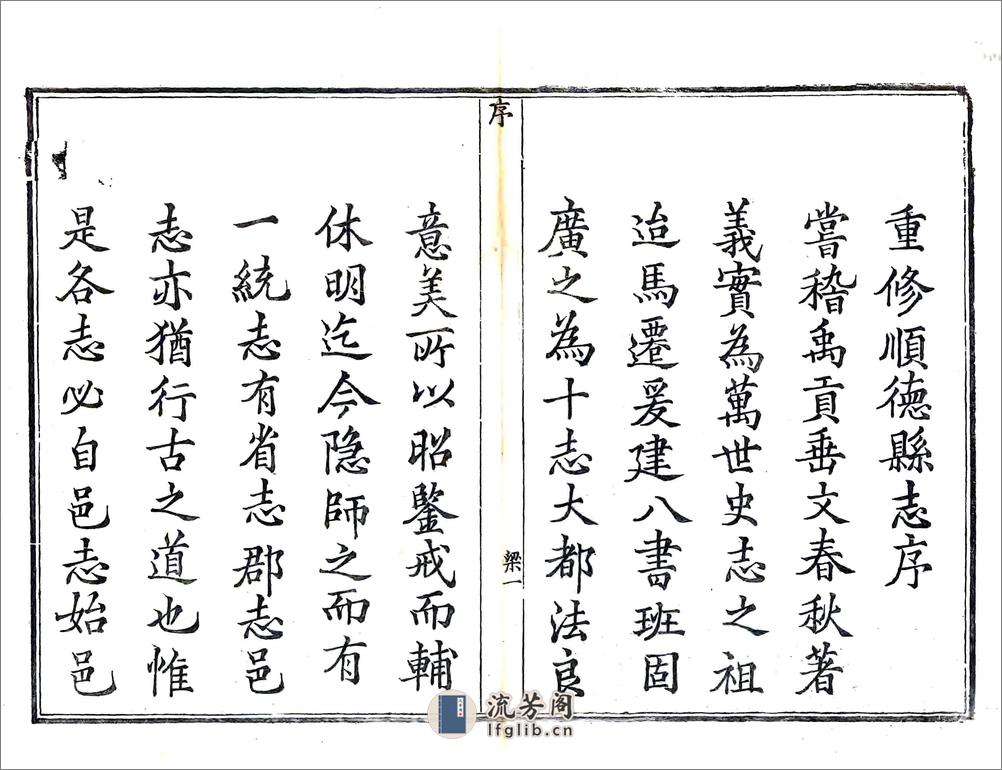 重修順德縣志序
嘗稽禹貢垂文春秋著
義實為萬世史志之祖
迨馬遷爰建八書班固
廣之為十志大都法良
序
梁一
意美所以昭鑒戒而輔
休明迄今隐師之而有
一統志有省志郡志邑
志亦猶行古之道也惟
是各志必自邑志始邑
流芳阁
lfglib.cn